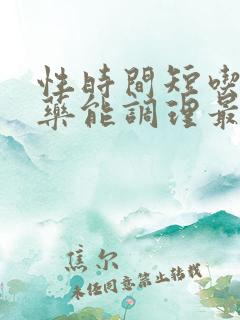 性時間短喫
藥能調理最
焦尔
未经同意禁止转载